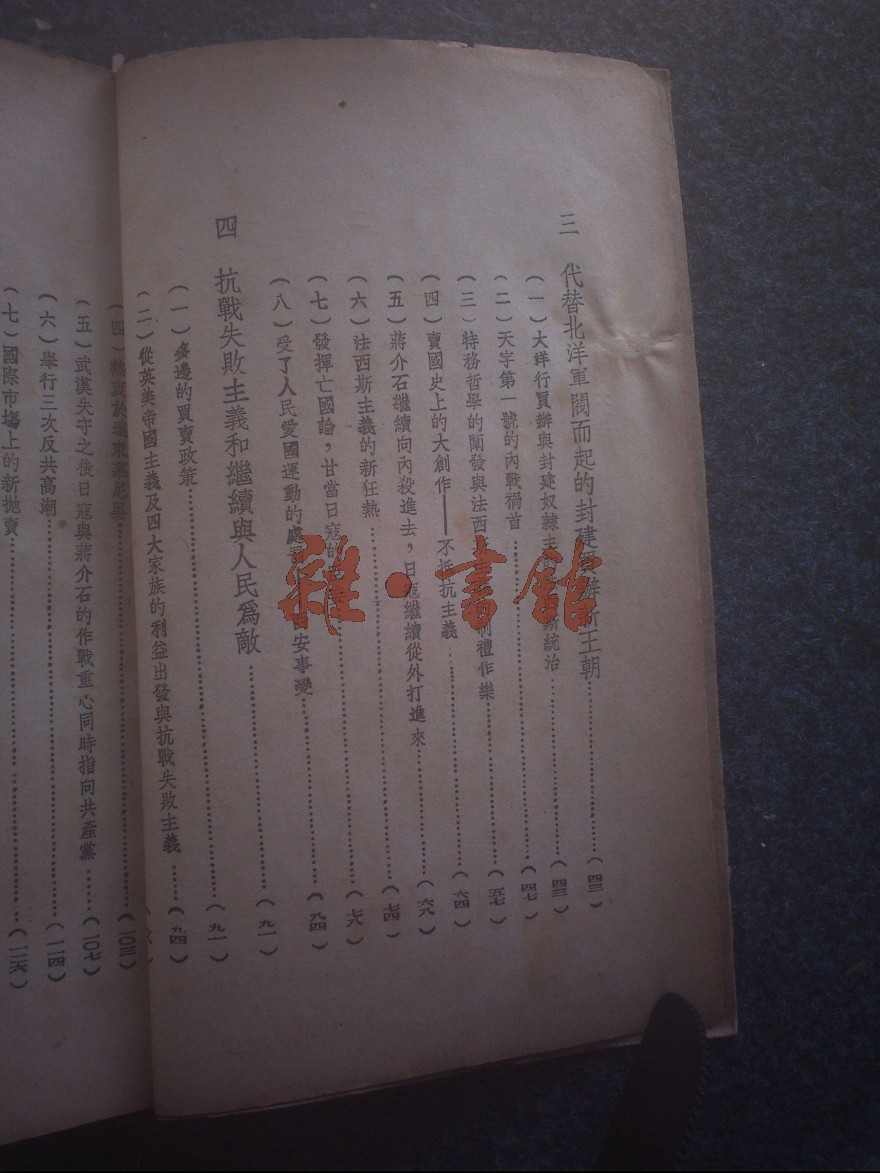 三 代替北洋軍閥而起的封建買辦新王朝……(四三)
(一)大洋行買辦與封建奴隸主 新統治……(四三)
(二)天字第一號的內戰禍首……(四七)
(三)特務哲學的闡發與法西 制禮作樂……(五七)
(四)賣國史上的大創作——不抵抗主義……(六四)
(五)蔣介石繼續向內殺進去,日寇繼續從外打進來……(六八)
(六)法西斯主義的新狂熱……(七四)
(七)發揮亡國論,甘當日寇的……
(八)受了人民愛國運動的處 西安事變……(八四)
四 抗戰失敗主義和繼續與人民爲敵……(九一)
(一)多邊的買賣政策……(九一)
(二)從英美帝國主義及四大家族的利益出發與抗戰失敗主義……(九四)
(四)熱衷於遠東慕尼黑……(一〇三)
(五)武漢失守之後日寇與蔣介石的作戰重心同時指向共產黨……(一〇七)
(六)舉行三次反共高潮……(一一四)
(七)國際市場上的新拋賣……(一二六)
雜·書館